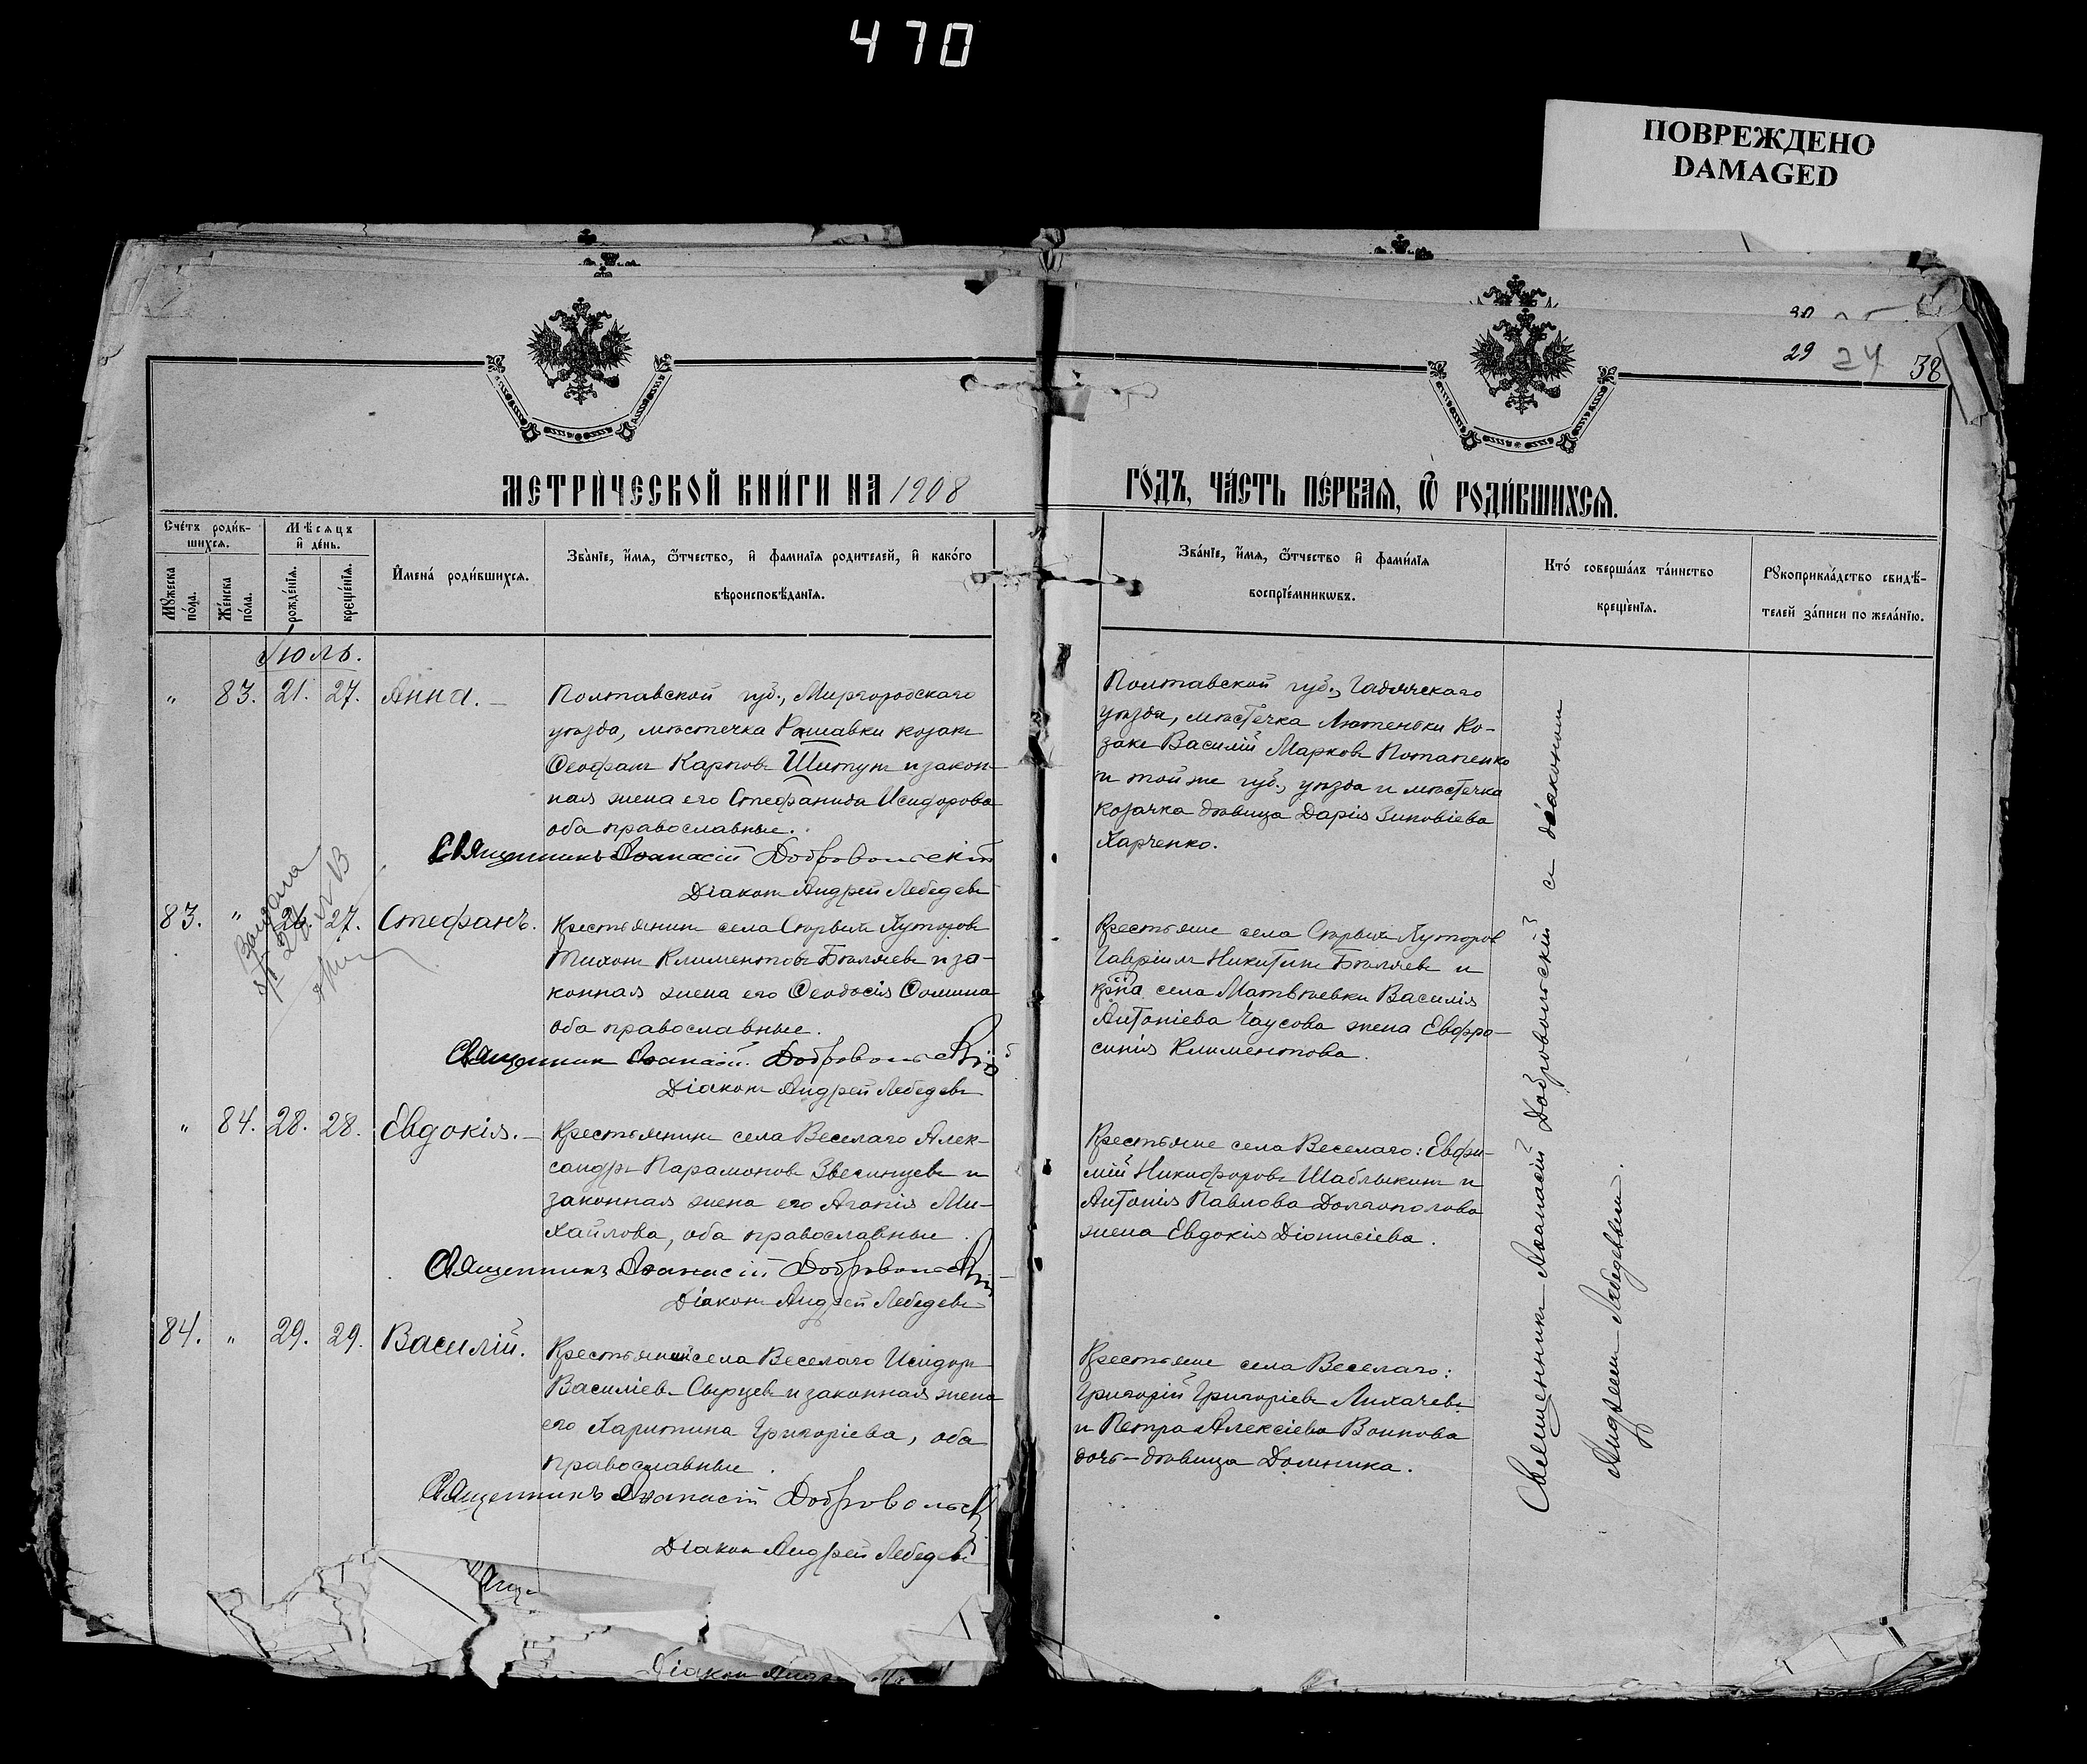 470
ПОВРЕЖДЕНО
DAMAGED
30
29 24 38
МЕТРИЧЕСКОЙ КНИГИ НА 1908 ГОДЪ, ЧАСТЬ ПЕРВАЯ, Ѿ РОДИВШИХСЯ.
Счетъ родив-
шихся.
Мѣсяцъ
и день.
Мужеска
пола.
Женска
пола.
рожденія.
крещенія.
Имена родившихся.
Званіе, имя, ѿтчество, и фамилія родителей, и какого
вѣроисповѣданія.
Званіе, имя, ѿтчество и фамилія
воспріемниковъ.
Кто совершалъ таинство
крещенія.
Рукоприкладство свидѣ-
телей записи по желанію.
Іюль.
" 83. 21. 27. Анна. —
Полтавской губ., Миргородскаго
уѣзда, мѣстечка Рашавки козакъ
Ѳеофанъ Карповъ Шитунъ и закон-
ная жена его Стефанида Исидорова
оба православные.
Священникъ Аѳанасій Добровольскій
Діаконъ Андрей Лебедевъ
Полтавской губ., Гадячскаго
уѣзда, мѣстечка Лютеньки Ко-
закъ Василій Марковъ Потапенко
и той же губ., уѣзда и мѣстечка
козачка дѣвица Дарія Зиновіева
Харченко.
83. " 27. Стефанъ.
Крестьянинъ села Старыхъ Хуторовъ
Тихонъ Климентовъ Бѣляевъ и за-
конная жена его Ѳеодосія Ѳомина
оба православные.
Священник Аѳанасій Добровольскій
Діаконъ Андрей Лебедевъ
Крестьяне села Старыхъ Хуторовъ
Гавріилъ Никитинъ Бѣляевъ и
села Матвѣевки Василія
Антоніева Чаусова жена Евфро-
синія Климентова.
" 84. 28. 28. Евдокія. —
Крестьянинъ села Веселаго Алек-
сандръ Парамоновъ Звегинцевъ и
законная жена его Агапія Ми-
хайлова, оба православные.
Священникъ Аѳанасій Добровольскій
Діаконъ Андрей Лебедевъ
Крестьяне села Веселаго: Евфи-
мій Никифоровъ Шаблыкинъ и
Антонія Павлова Долгополова
жена Евдокія Діонисіева.
84. " 29. 29. Василій.
Крестьянинъ села Веселаго Исидоръ
Василіевъ Сырцевъ и законная жена
его Харитина Григоріева, оба
православные.
Священникъ Аѳанасій Добровольскій
Діаконъ Андрей Лебедевъ
Крестьяне села Веселаго:
Григорій Григоріевъ Лихачевъ
и Петра Алексіева Воинова
дочь-дѣвица Домника.
Священникъ Аѳанасій Добровольскій съ діакономъ
Андреемъ Лебедевымъ.
Діакон